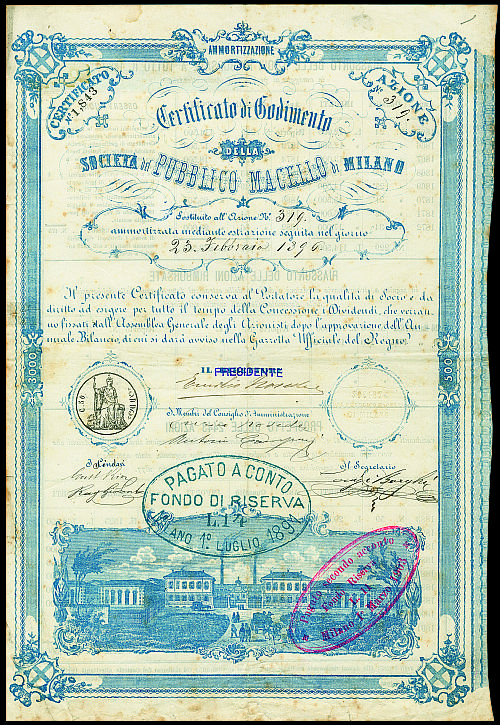 AMMORTIZZAZIONE
CERTIFICATO
N° 1843
AZIONE
N° 319
Certificato di Godimento
DELLA
SOCIETÀ del PUBBLICO MACELLO di MILANO
Sostituito all'Azione N° 319.
ammortizzata mediante estrazione seguita nel giorno
23. Febbraio 1896
Il presente Certificato conserva al Portatore la qualità di Socio e da
diritto ad esigere per tutto il tempo della Concessione i Dividendi, che verran
no fissati dall'Assemblea Generale degli Azionisti dopo l'approvazione dell'An
nuale Bilancio, di cui si darà avviso nella Gazzetta Ufficiale del Regno.
3000
500
IL PRESIDENTE
I Membri del Consiglio di Amministrazione
I Sindaci
Il Segretario
PAGATO A CONTO
FONDO DI RISERVA
L. 14
MILANO 1° LUGLIO 1897
Pagato secondo acconto
Fondo Riserva
Milano 1° Marzo